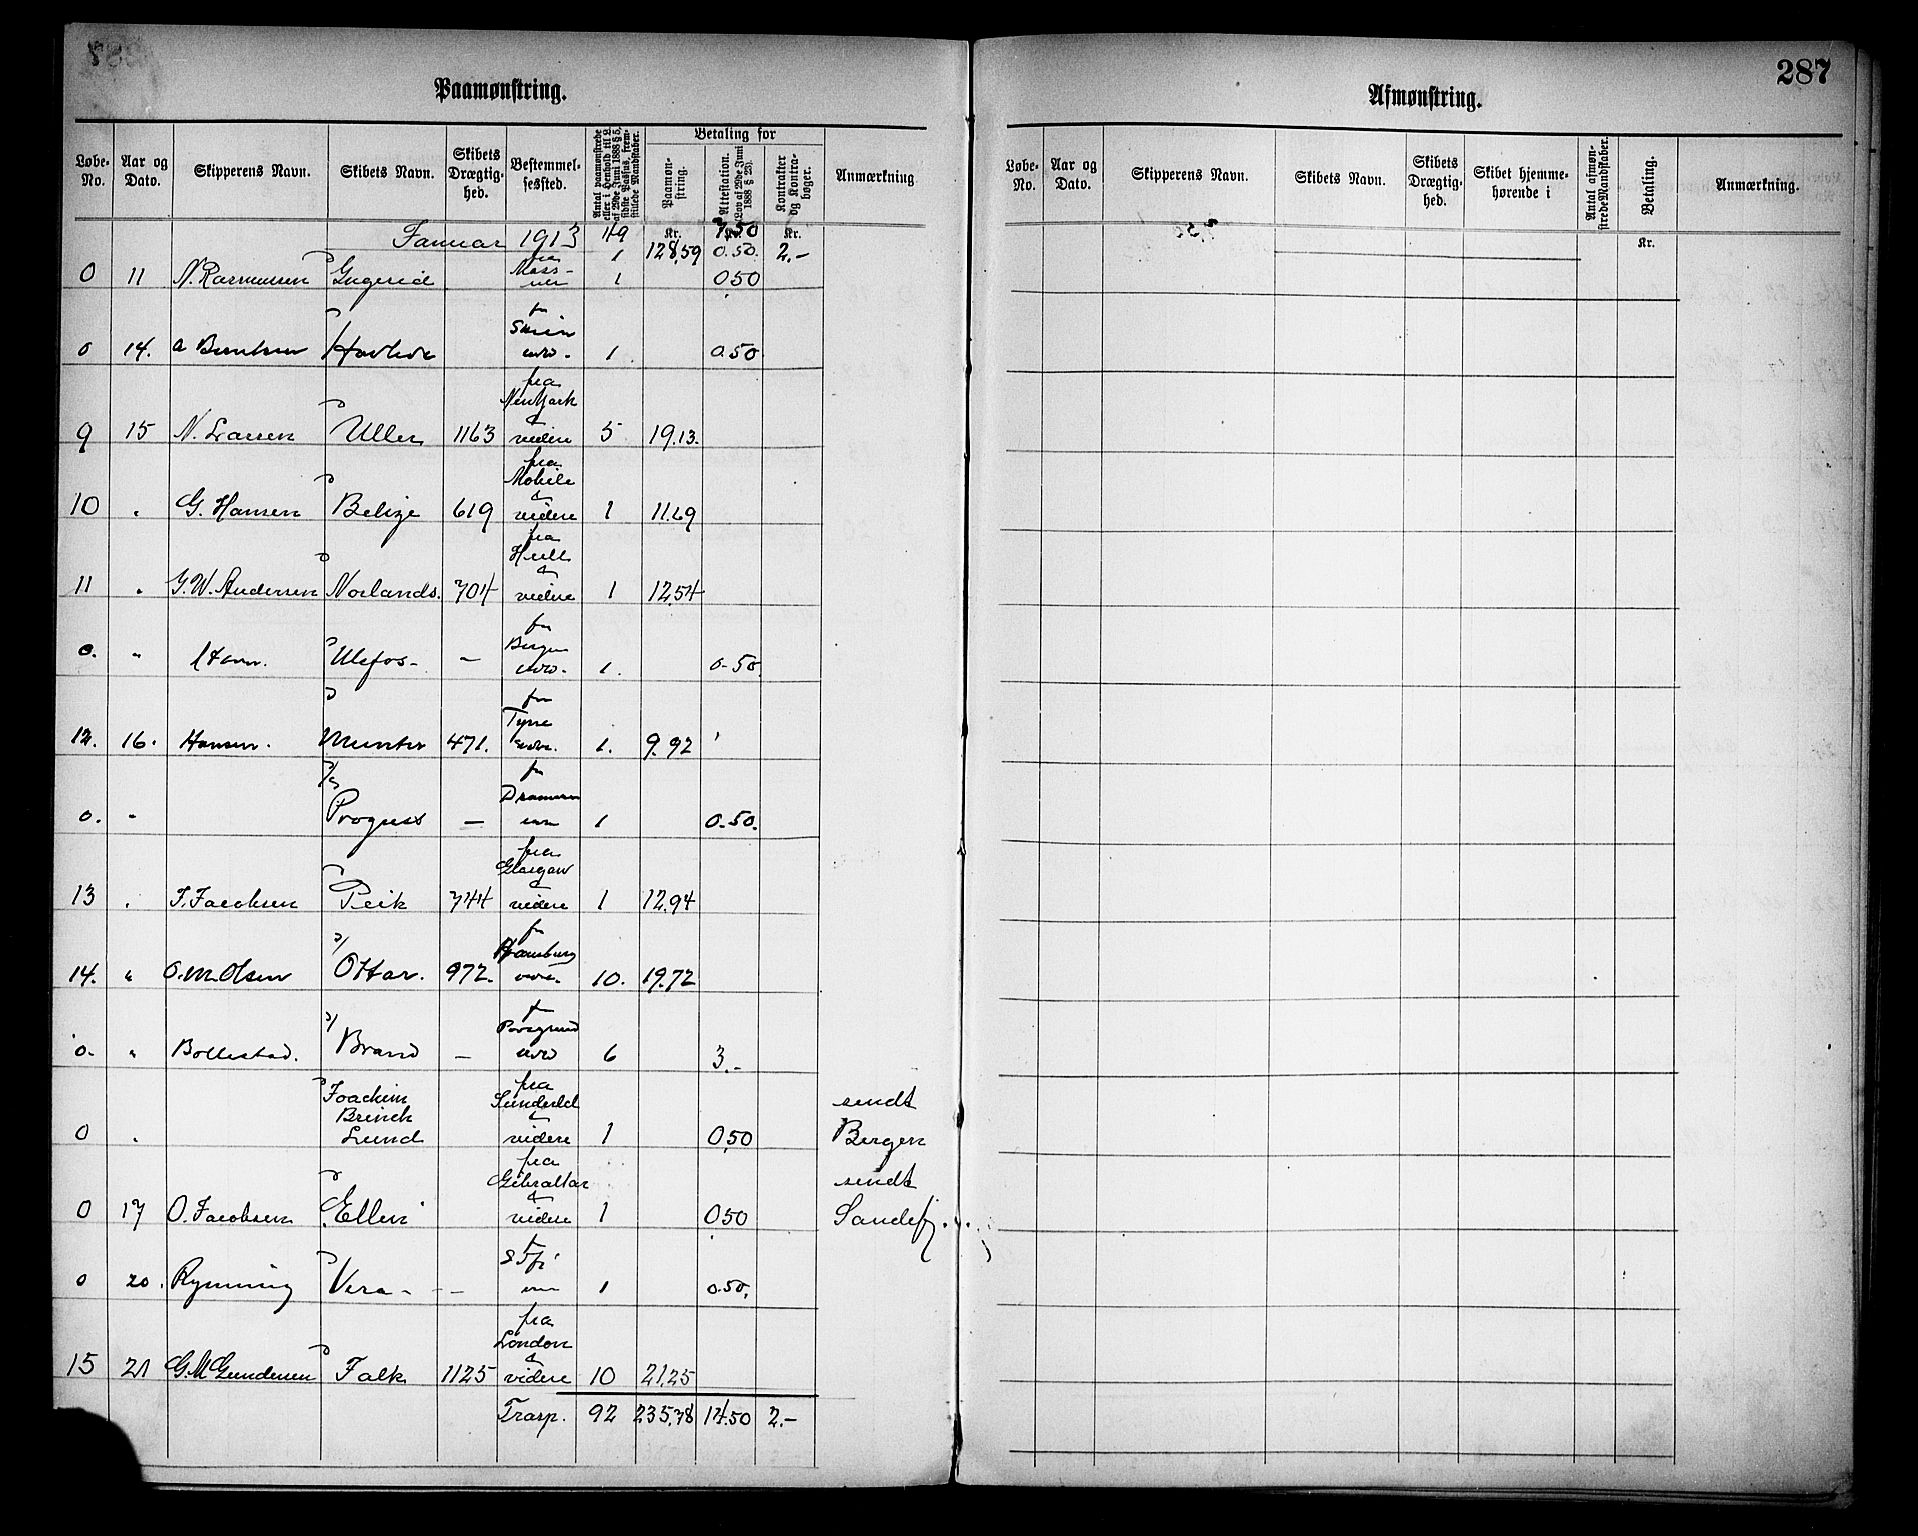 Paamønstring.
Løbe-No. | Aar og Dato. | Skipperens Navn. | Skibets Navn. | Skibets Drægtighed. | Bestemmelsessted. | Antal paamønstrede eller i Henhold til L. af 29de Juni 1888 § 5, sidste Passus, fremstillede Mandskaber. | Betaling for | Paamønstring. | Attestation. (Lov af 29de Juni 1888 § 23). | Kontrakter og Kontrabøger. | Anmærkning
Januar 1913 | 49 | Kr. 128,59 | 7.50 | Kr. 2.-
1 | 0.50.
0 | 11 | N. Rasmussen | Ingerid | fra Moss | 1 | 0 50
0 | 14. | Berntsen | fr Skien | 1 | 0.50
9 | 15 | N. Larsen | Uller | 1163 | fra New York & videre | 5 | 19.13.
10 | " | G. Hansen | Belize | 619 | fra Mobile & videre | 1 | 11.69
11 | " | G.W. Andersen | Norlands. | 704 | fra Hull & videre | 1 | 12,54
0. | " | Ulefos - | - | fra Bergen | 1. | 0-50.
12. | 16. | Hansen. | Munter | 471. | fra Tyne | 1. | 9.92
0. | " | Progress | - | fr Drammen | 1 | 0.50.
13 | " | J. Jacobsen | Peik | 744 | fra Glasgow & videre | 1 | 12.94
14. | " | O.M. Olsen | Ottar. | 972. | fr Hamburg | 10. | 19.72
0. | " | Bollestad. | Brand | - | fr Porsgrund | 6 | 3.-
0 | " | Joachim Brinch Lund | fra Sunderld & videre | 1 | 0,50 | sendt Bergen
0 | 17 | O. Jacobsen | Ellen | fra Gibraltar & videre | 1 | 0,50 | sendt Sandefj.
0 | 20. | Rynning | Vera - | - | 1 | 0.50.
15 | 21 | G.M Gundersen | Falk | 1125 | fra London & videre | 10 | 21,25
Trasp. | 92 | 235,78 | 14.50 | 2.-
287
Afmønstring.
Løbe-No. | Aar og Dato. | Skipperens Navn. | Skibets Navn. | Skibets Drægtighed. | Skibet hjemmehørende i | Antal afmønstrede Mandskaber. | Betaling. | Anmærkning.
Kr.